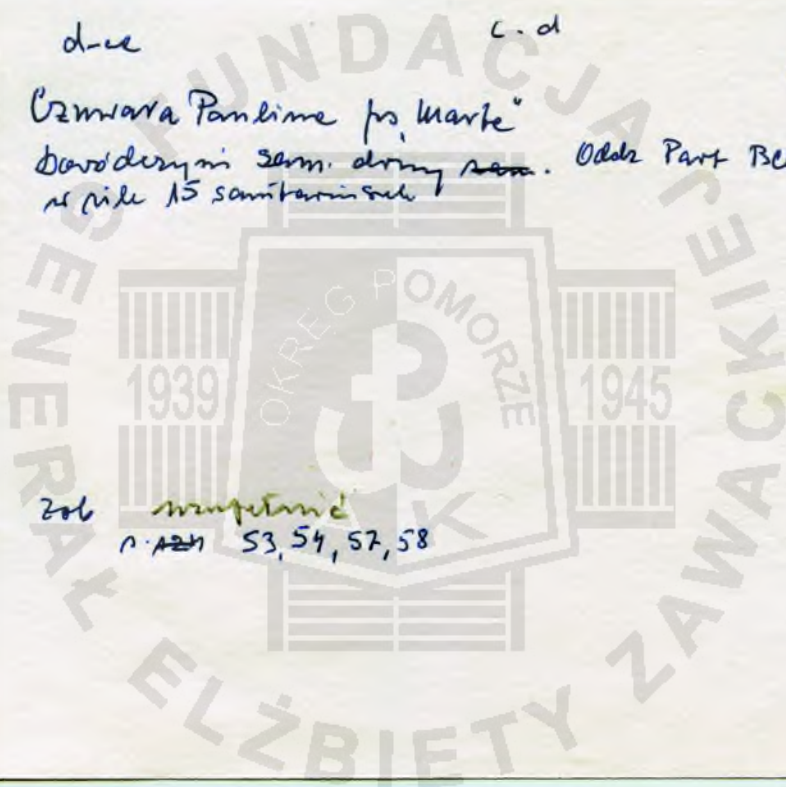 d-ca c.d
Czmwara Paulina ps. "Marta"
Dowódczyni san. drużyny san. Oddz Part BC
w sile 15 sanitariuszek
Zob uzupełnić
s. 53, 54, 57, 58
FUNDACJA GENERAŁ ELŻBIETY ZAWACKIEJ
OKRĘG POMORZE
1939 1945
AK